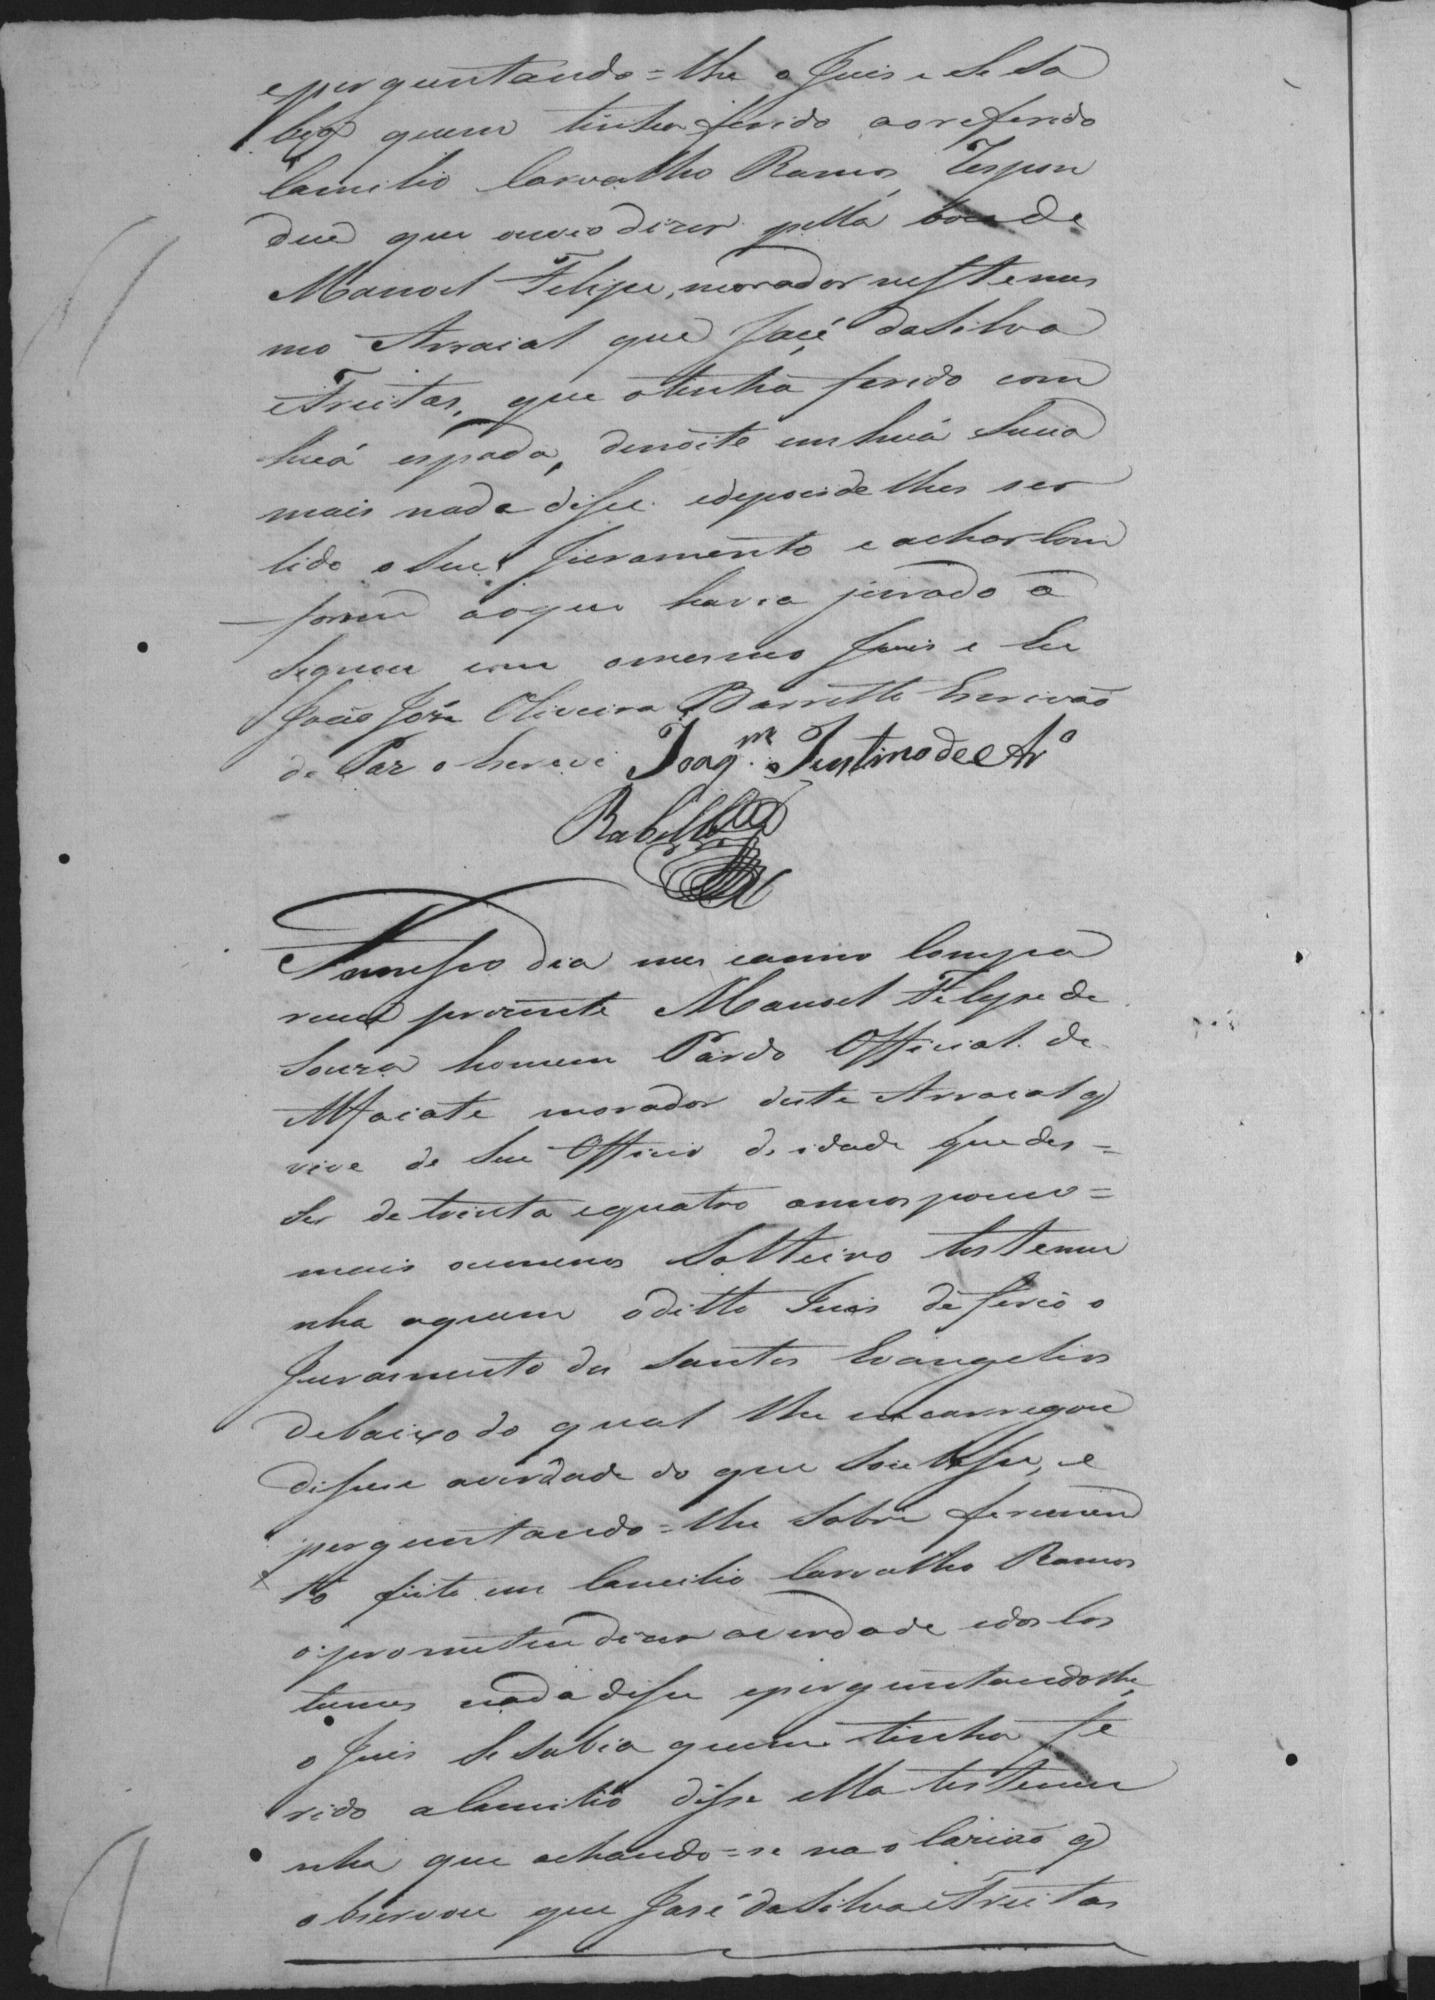 eperguntando=lhe o Juis e Se Sa
bia quem tinha ferido aoreferido
Camilio Carvalho Ramos, Respon
deu que ouvio dizer pella boca de
Manoel Felipe, morador nesste mes
mo Arraial que José daSilva
eFreitas, que otinha ferido com
huá espada, denoite em huá Sucia
mais nada disse edepois de lhes ser
lido o Seu Juramento e achar Com
forme aoque havia jurado a
Signou com omesmo Juis e Eu
João José Oliveira Barretto Escrivão
de Paz o escrevi Joaqm Justino de Aro
Rabello
No mesmo dia mes eanno Compa
receu prezente Manoel Felype de
Souza homem Pardo Official de
Alfaiate morador deste Arraial q
vive de Seu Officio de idade que des=
Se de trinta equatro annos pouco=
mais oumenos Solteiro testemu
nha aquem oditto Juis deferio o
Juramento dos Santos Evangelios
debaixo do qual lhe encarregou
disesse averdade do que Soubesse, e
perguntando=lhe Sobre ferimen
to feito em Camilio Carvalho Ramos
o prometeu dizer averdade edos Cos
tumes nada disse eperguntandolhe
o Juis Se Sabia quem tinha fe
rido aCamilio disse ella testemu
nha que achando=se na oCazião q
observou que José daSilva eFreitas